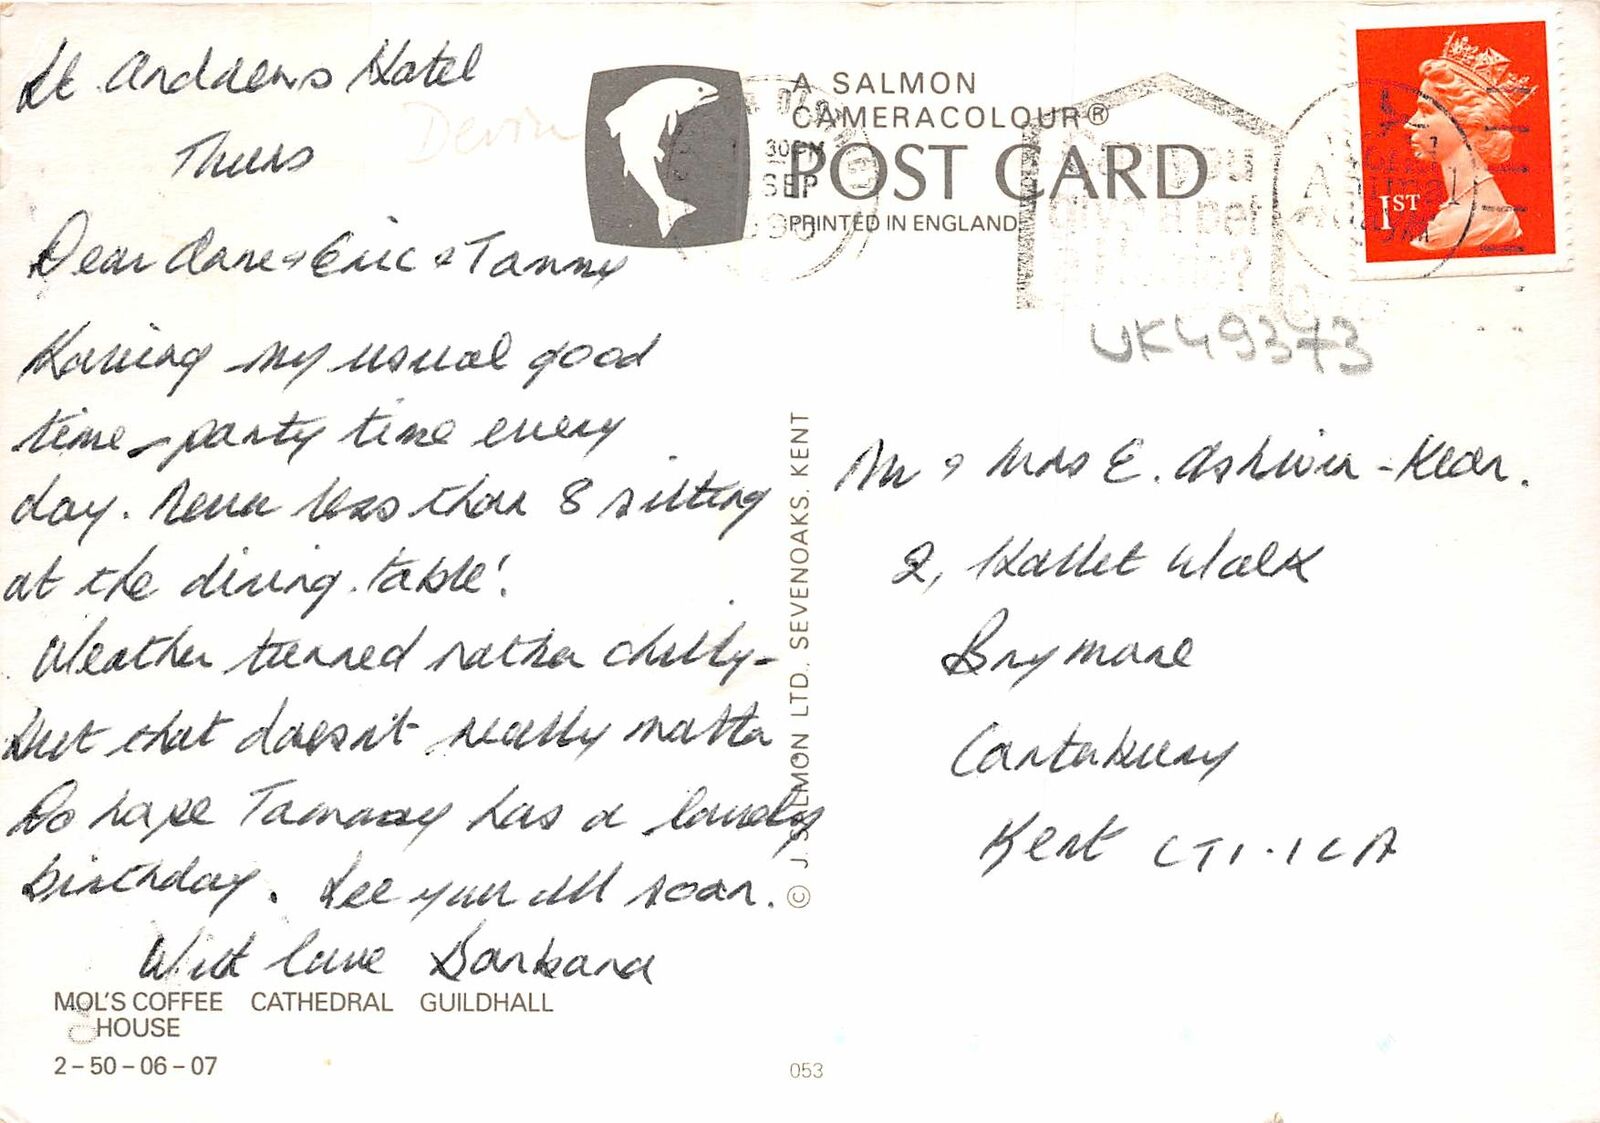 St Andrews Hotel
Devon
Thurs
Dear Clare & Eric & Tammy
Having my usual good
time - party time every
day. Never less than 8 sitting
at the dining table!
Weather turned rather chilly -
but that doesn't really matter
Do hope Tammy has a lovely
birthday. See you all soon.
With love Barbara
MOL'S COFFEE CATHEDRAL GUILDHALL
HOUSE
2-50-06-07
A SALMON
CAMERACOLOUR®
POST CARD
PRINTED IN ENGLAND
30PM
SEP
you
give a pet
a home?
1ST
UK49373
© J. SALMON LTD., SEVENOAKS, KENT
Mr & Mrs E. Ashwin-Kean.
2, Hallet Walk
Brymore
Canterbury
Kent CT1.1LA
053